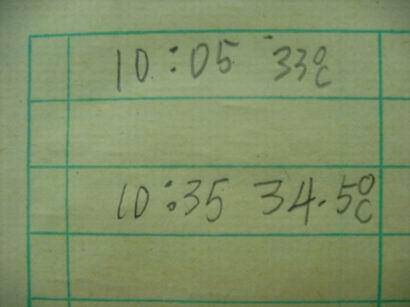 10:05 33℃
10:35 34.5℃